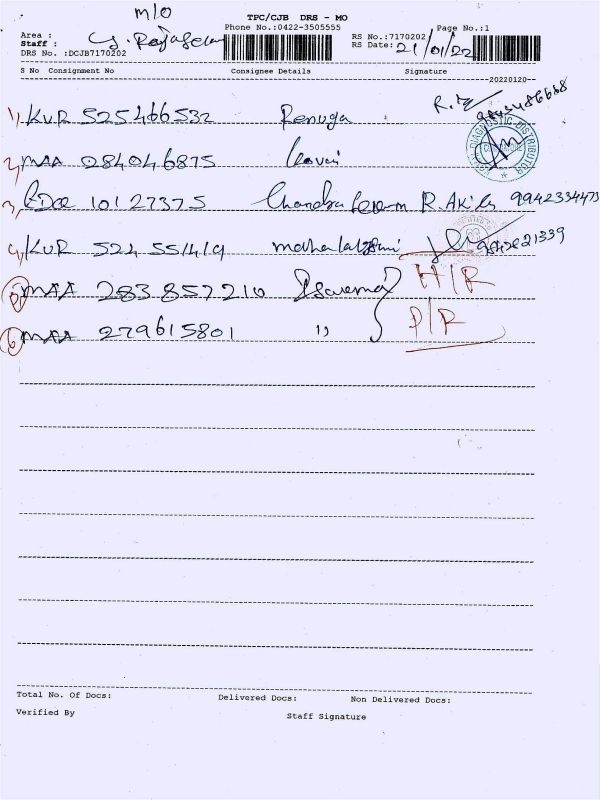 M/O
TPC/CJB DRS - MO
Phone No.:0422-3505555 Page No.:1
Area : RS No.:7170202
Staff : RS Date: 21/01/22
DRS No. :DCJB7170202
S No Consignment No Consignee Details Signature
20220120
1, KUR 525466532 Renuga
2, MAA 284046875
3, 10127375 Chandra R. 9942334473
4, KUR 524 551419 mahalakshmi
5 MAA 283 857210 H/R
6 MAA 279615801 " D/R
Total No. Of Docs: Delivered Docs: Non Delivered Docs:
Verified By Staff Signature